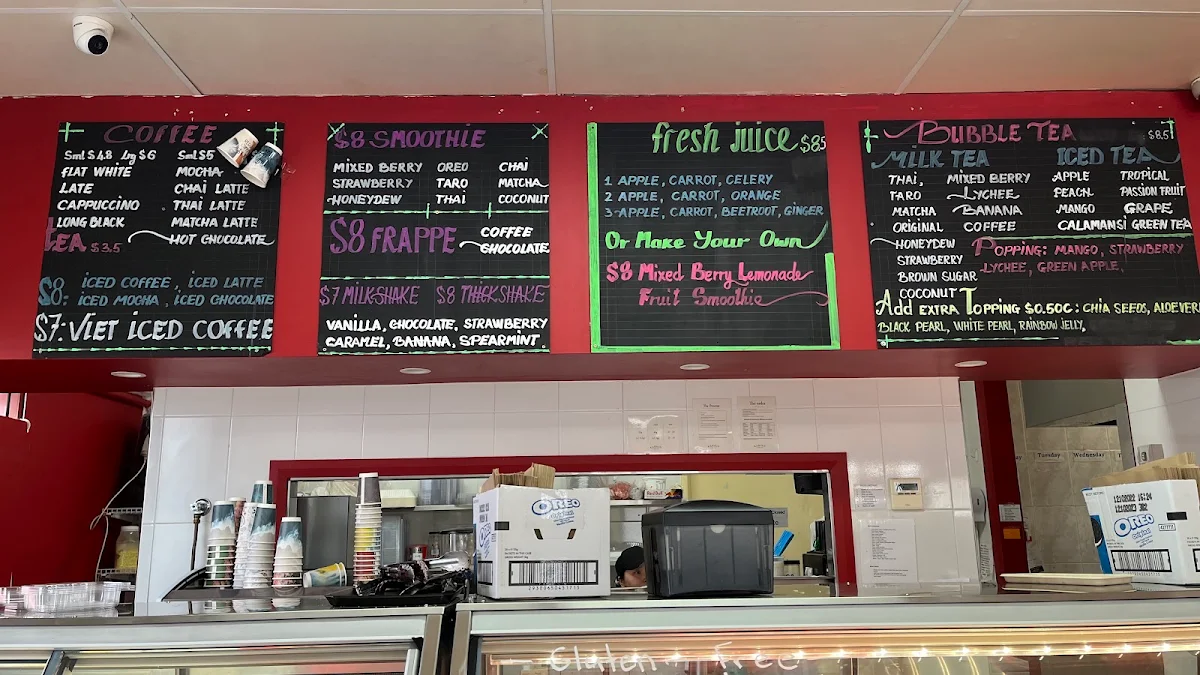 COFFEE
Sml $4.8 Lrg $6
FLAT WHITE
LATE
CAPPUCCINO
LONG BLACK
TEA $3.5
Sml $5
MOCHA
CHAI LATTE
THAI LATTE
MATCHA LATTE
HOT CHOCOLATE
$8: ICED COFFEE, ICED LATTE
ICED MOCHA, ICED CHOCOLATE
$7: VIET ICED COFFEE
$8 SMOOTHIE
MIXED BERRY OREO CHAI
STRAWBERRY TARO MATCHA
HONEYDEW THAI COCONUT
$8 FRAPPE
COFFEE
CHOCOLATE
$7 MILKSHAKE $8 THICKSHAKE
VANILLA, CHOCOLATE, STRAWBERRY
CARAMEL, BANANA, SPEARMINT.
fresh juice $8.5
1 APPLE, CARROT, CELERY
2 APPLE, CARROT, ORANGE
3 APPLE, CARROT, BEETROOT, GINGER
Or Make Your Own
$8 Mixed Berry Lemonade
Fruit Smoothie
BUBBLE TEA $8.5
MILK TEA
THAI,
TARO
MATCHA
ORIGINAL
HONEYDEW
STRAWBERRY
BROWN SUGAR
COCONUT
MIXED BERRY
LYCHEE
BANANA
COFFEE
ICED TEA
APPLE TROPICAL
PEACH PASSION FRUIT
MANGO GRAPE
CALAMANSI GREEN TEA
POPPING: MANGO, STRAWBERRY
LYCHEE, GREEN APPLE,
Add EXTRA TOPPING $0.50C: CHIA SEEDS, ALOEVER
BLACK PEARL, WHITE PEARL, RAINBOW JELLY,
Tuesday Wednesday
RedBull
OREO
OREO
Gluten Free